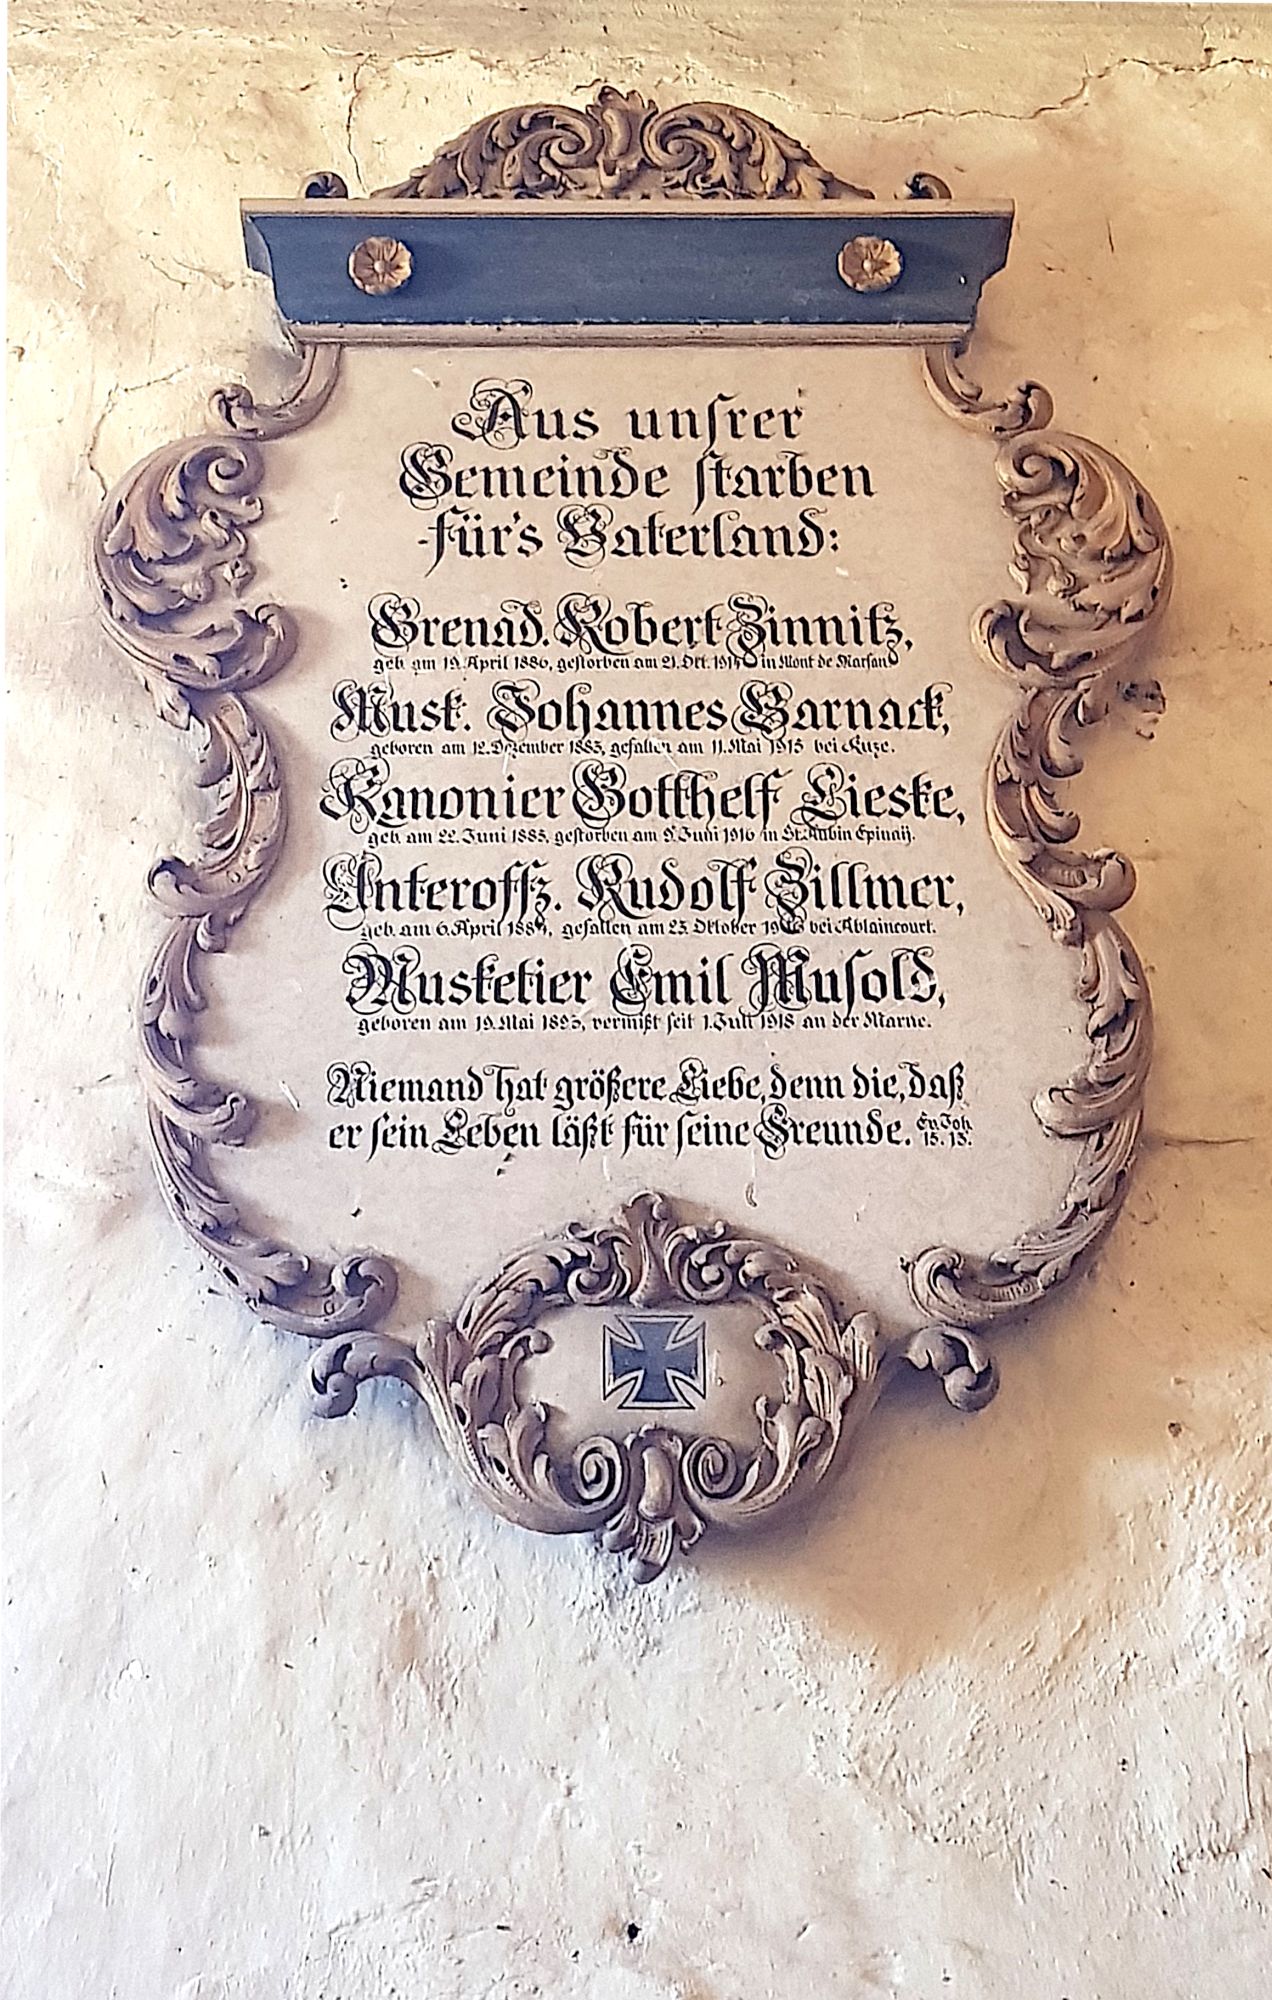 Aus unsrer
Gemeinde starben
für's Vaterland:
Grenad. Robert Zinnitz,
geb. am 19. April 1886, gestorben am 21. Okt. 1914 in Mont de Marsan
Musk. Johannes Barnack,
geboren am 12. Dezember 1885, gefallen am 11. Mai 1915 bei
Kanonier Gotthelf Lieske,
geb. am 22. Juni 1885, gestorben am 9. Juni 1916 in St. Aubin Epinaij.
Unteroffz. Rudolf Zillmer,
geb. am 6. April gefallen am 23. Oktober bei Ablaincourt.
Musketier Emil Musold,
geboren am 19. Mai vermißt seit 1. Juli 1918 an der Marne.
Niemand hat größere Liebe, denn die, daß
er sein Leben läßt für seine Freunde. Ev. Joh. 15. 13.